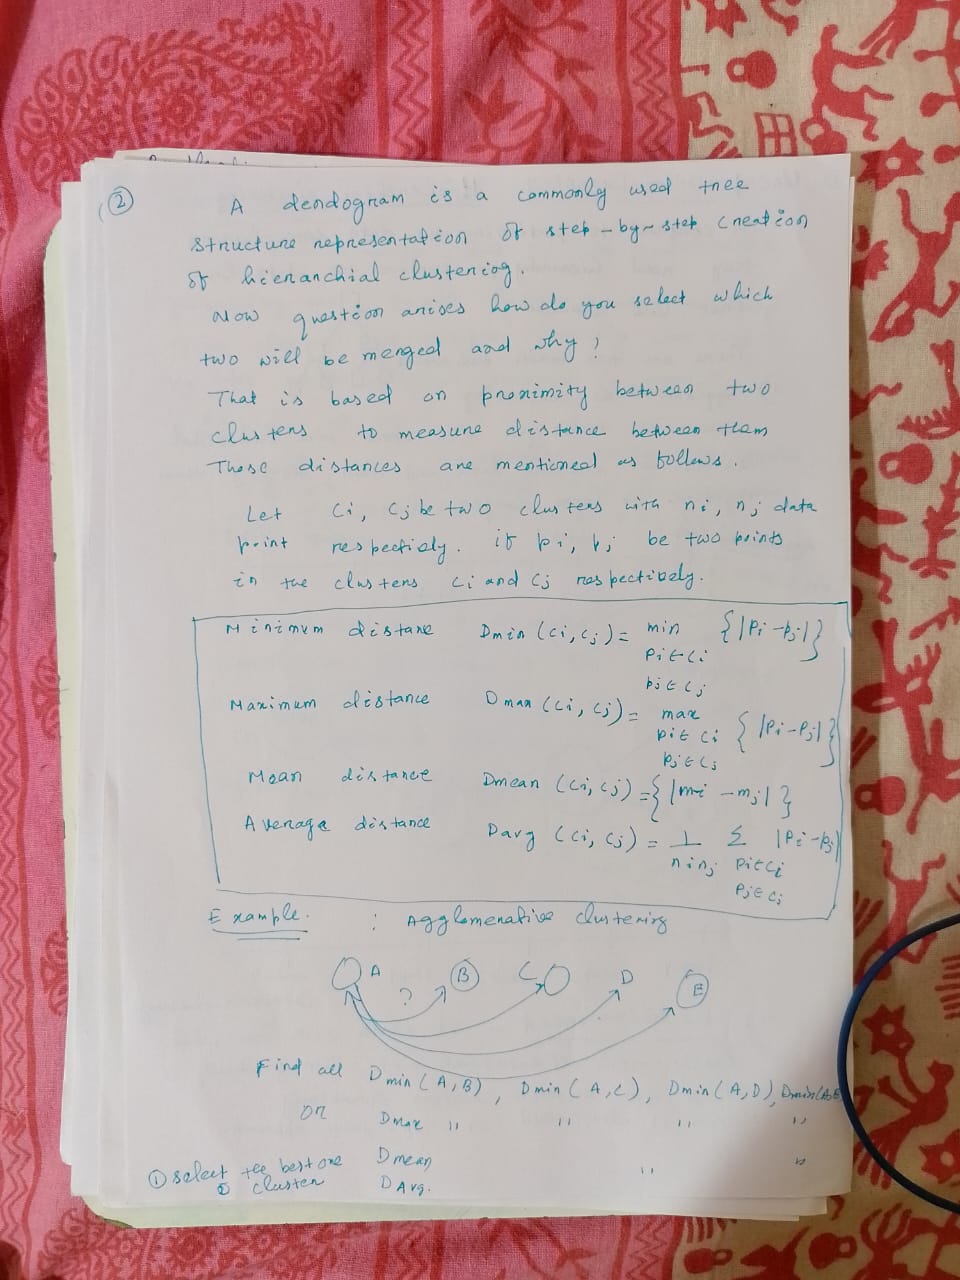 ②
A dendogram is a commonly used tree
structure representation of step-by-step creation
of hierarchial clustering.
Now question arises how do you select which
two will be merged and why?
That is based on proximity between two
clusters to measure distance between them
These distances are mentioned as follows.
Let Ci, Cj be two clusters with ni, nj data
point respectively. if pi, pj be two points
in the clusters Ci and Cj respectively.
Minimum distane Dmin (Ci, Cj) = min {|Pi - pj|}
Pi ∈ Ci
pj ∈ Cj
Maximum distance Dmax (Ci, Cj) = max {|Pi - Pj|}
Pi ∈ Ci
Pj ∈ Cj
Mean distance Dmean (Ci, Cj) = {|mi - mj|}
Average distance Davg (Ci, Cj) = 1 Σ |Pi - Pj|
ninj Pi ∈ Ci
Pj ∈ Cj
Example. : Agglomerative clustering
A B C D E
?
Find all Dmin (A, B), Dmin (A, C), Dmin (A, D), Dmin (A, E
or Dmax " " " "
Dmean " "
① select the best one
cluster DAvg.